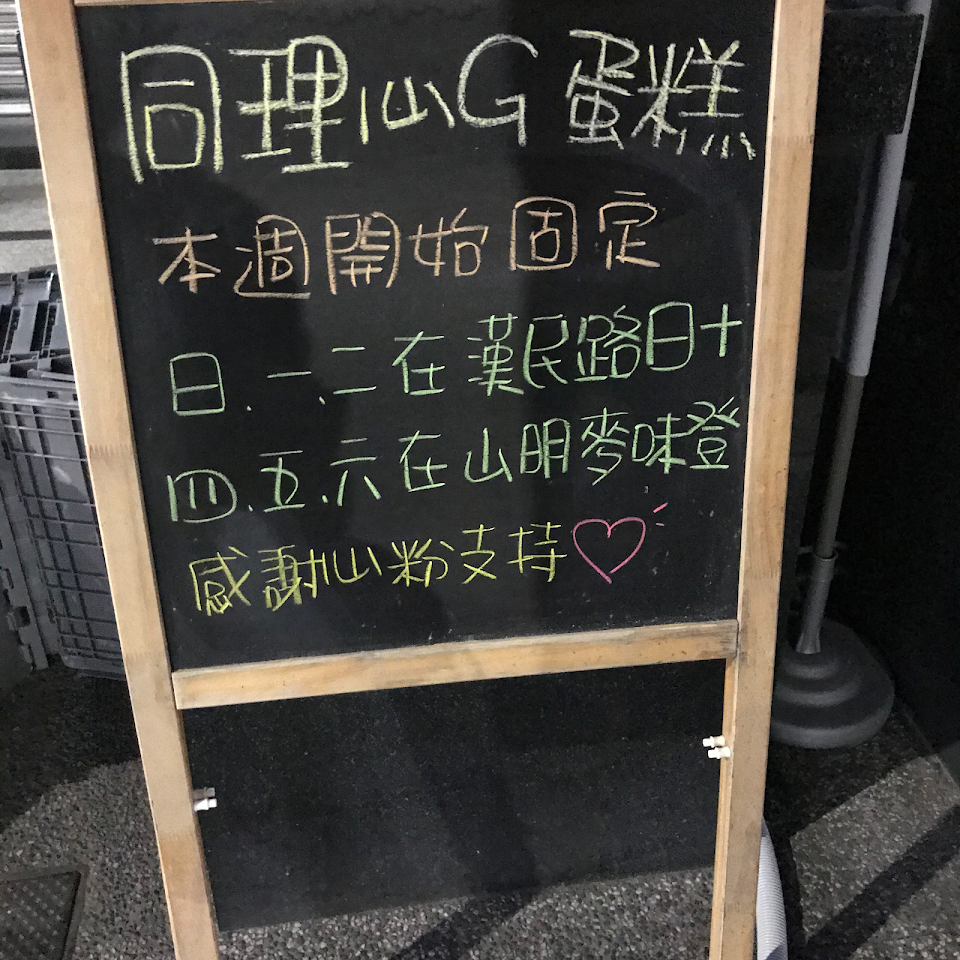 同理心G蛋糕
本週開始固定
日.一.二在漢民路日十
四.五.六在山明麥味登
感謝心粉支持♡